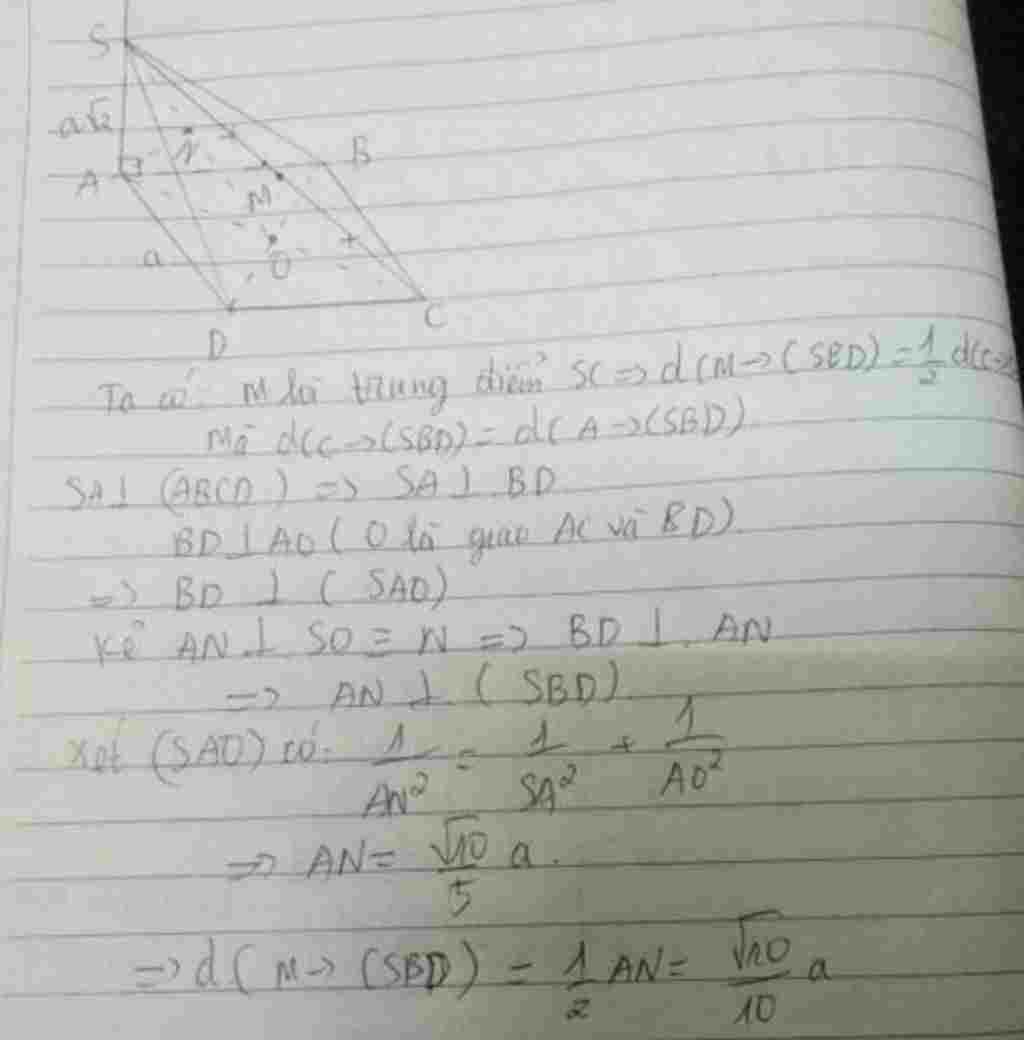 S
a√2
N
B
A
M
a
O
D
C
Ta có: M là trung điểm SC => d(M->(SBD) = 1/2 d(C->
Mà d(C->(SBD) = d(A->(SBD)
SA⊥ (ABCD) => SA⊥ BD
BD⊥AO (O là giao AC và BD)
=> BD ⊥ (SAO)
Kẻ AN⊥ SO ≡ N => BD⊥ AN
=> AN ⊥ (SBD)
Xét (SAO) có: 1/AN² = 1/SA² + 1/AO²
=> AN = √10/5 a.
=> d(M->(SBD) = 1/2 AN = √10/10 a